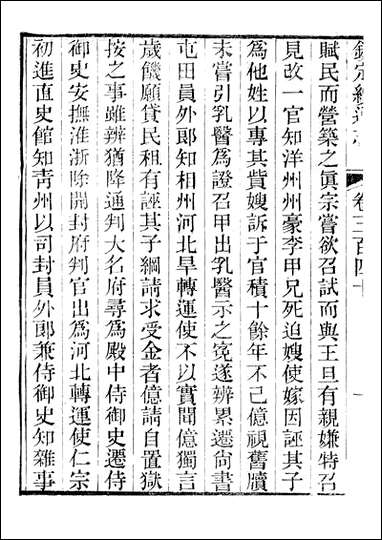 欽定續通志
卷三百四十
一
賦民而營築之眞宗嘗欲召試而與王旦有親嫌特召
見改一官知洋州州豪李甲兄死迫嫂使嫁因誣其子
為他姓以專其貲嫂訴于官積十餘年不已億視舊牘
未嘗引乳醫為證召甲出乳醫示之冤遂辨累遷尚書
屯田員外郎知相州河北旱轉運使不以實聞億獨言
歲饑願貸民租有誣其子綱請求受金者億請自置獄
按之事雖辨猶降通判大名府尋為殿中侍御史遷侍
御史安撫淮浙除開封府判官出為河北轉運使仁宗
初進直史館知靑州以司封員外郎兼侍御史知雜事